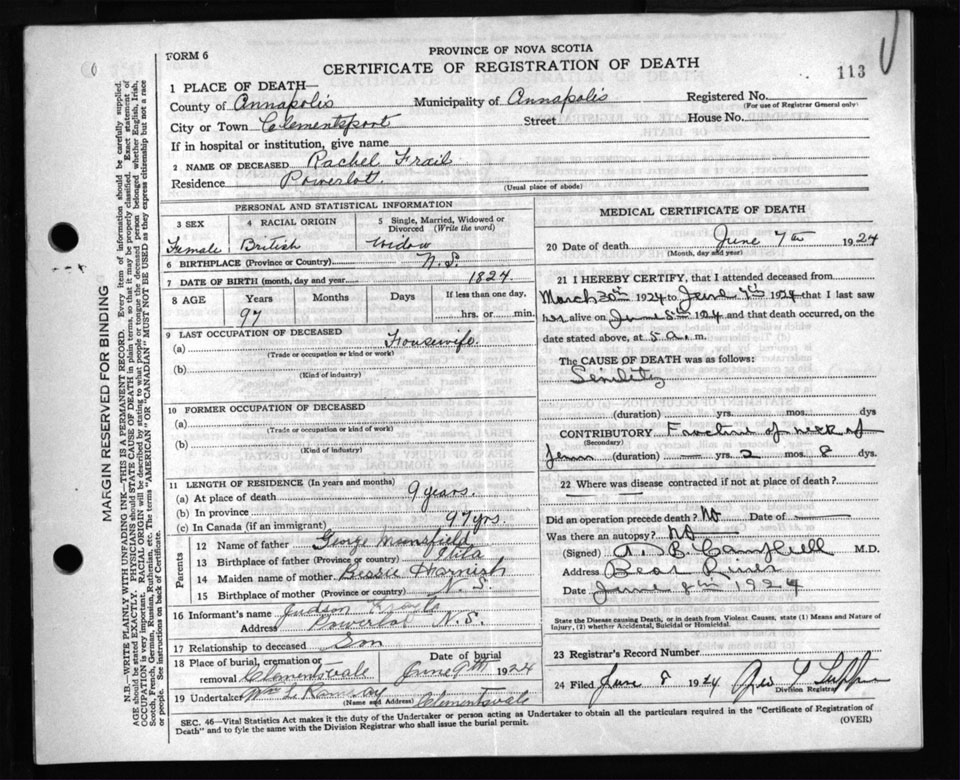 FORM 6
PROVINCE OF NOVA SCOTIA
CERTIFICATE OF REGISTRATION OF DEATH
113
1 PLACE OF DEATH—
County of Annapolis Municipality of Annapolis Registered No.
(For use of Registrar General only)
City or Town Clementsport Street House No.
If in hospital or institution, give name
2 NAME OF DECEASED Rachel Frail
Residence Powerlot
(Usual place of abode)
PERSONAL AND STATISTICAL INFORMATION
3 SEX 4 RACIAL ORIGIN 5 Single, Married, Widowed or Divorced (Write the word)
Female British Widow
6 BIRTHPLACE (Province or Country) N.S.
7 DATE OF BIRTH (month, day and year) 1824
8 AGE Years Months Days If less than one day,
97 hrs. or min.
9 LAST OCCUPATION OF DECEASED
(a) Housewife.
(Trade or occupation or kind or work)
(b)
(Kind of industry)
10 FORMER OCCUPATION OF DECEASED
(a)
(Trade or occupation or kind of work)
(b)
(Kind of industry)
11 LENGTH OF RESIDENCE (In years and months)
(a) At place of death 9 years.
(b) In province
(c) In Canada (if an immigrant) 97 yrs.
Parents
12 Name of father George
13 Birthplace of father (Province or country)
14 Maiden name of mother Bessie Harnish
15 Birthplace of mother (Province or country) N.S.
16 Informant's name Judson
Address Powerlot N.S.
17 Relationship to deceased Son
18 Place of burial, cremation or removal Clementsvale Date of burial June 9th 1924
19 Undertaker Wm L Ramsay Clementsvale
(Name and Address)
MEDICAL CERTIFICATE OF DEATH
20 Date of death June 7th 1924
(Month, day and year)
21 I HEREBY CERTIFY, that I attended deceased from
March 30th 1924 to June 7th 1924 that I last saw
her alive on June 5th 1924 and that death occurred, on the
date stated above, at 5 a.m.
The CAUSE OF DEATH was as follows:
Senility
(duration) yrs. mos. dys
CONTRIBUTORY Fracture of neck of
(Secondary)
femur (duration) — yrs. 2 mos. 8 dys.
22 Where was disease contracted if not at place of death?
Did an operation precede death? No Date of —
Was there an autopsy? No
(Signed) A. B. Campbell M.D.
Address Bear River
Date June 8th 1924
State the Disease causing Death, or in death from Violent Causes, state (1) Means and Nature of Injury, (2) whether Accidental, Suicidal or Homicidal.
23 Registrar's Record Number
24 Filed June 8 1924 Division Registrar
SEC. 46—Vital Statistics Act makes it the duty of the Undertaker or person acting as Undertaker to obtain all the particulars required in the "Certificate of Registration of
Death" and to fyle the same with the Division Registrar who shall issue the burial permit. (OVER)
MARGIN RESERVED FOR BINDING
N.B.—WRITE PLAINLY WITH UNFADING INK—THIS IS A PERMANENT RECORD. Every item of information should be carefully supplied.
AGE should be stated EXACTLY. PHYSICIANS should STATE CAUSE OF DEATH in plain terms, so that it may be properly classified. Exact statement of
OCCUPATION is very important. RACIAL ORIGIN will be described by stating to what people or tongue the deceased person belonged whether English, Irish,
Scotch, French, German, Russian, Ruthenian, etc. The terms "AMERICAN" OR "CANADIAN" MUST NOT BE USED as they express citizenship but not a race
or people. See instructions on back of Certificate.